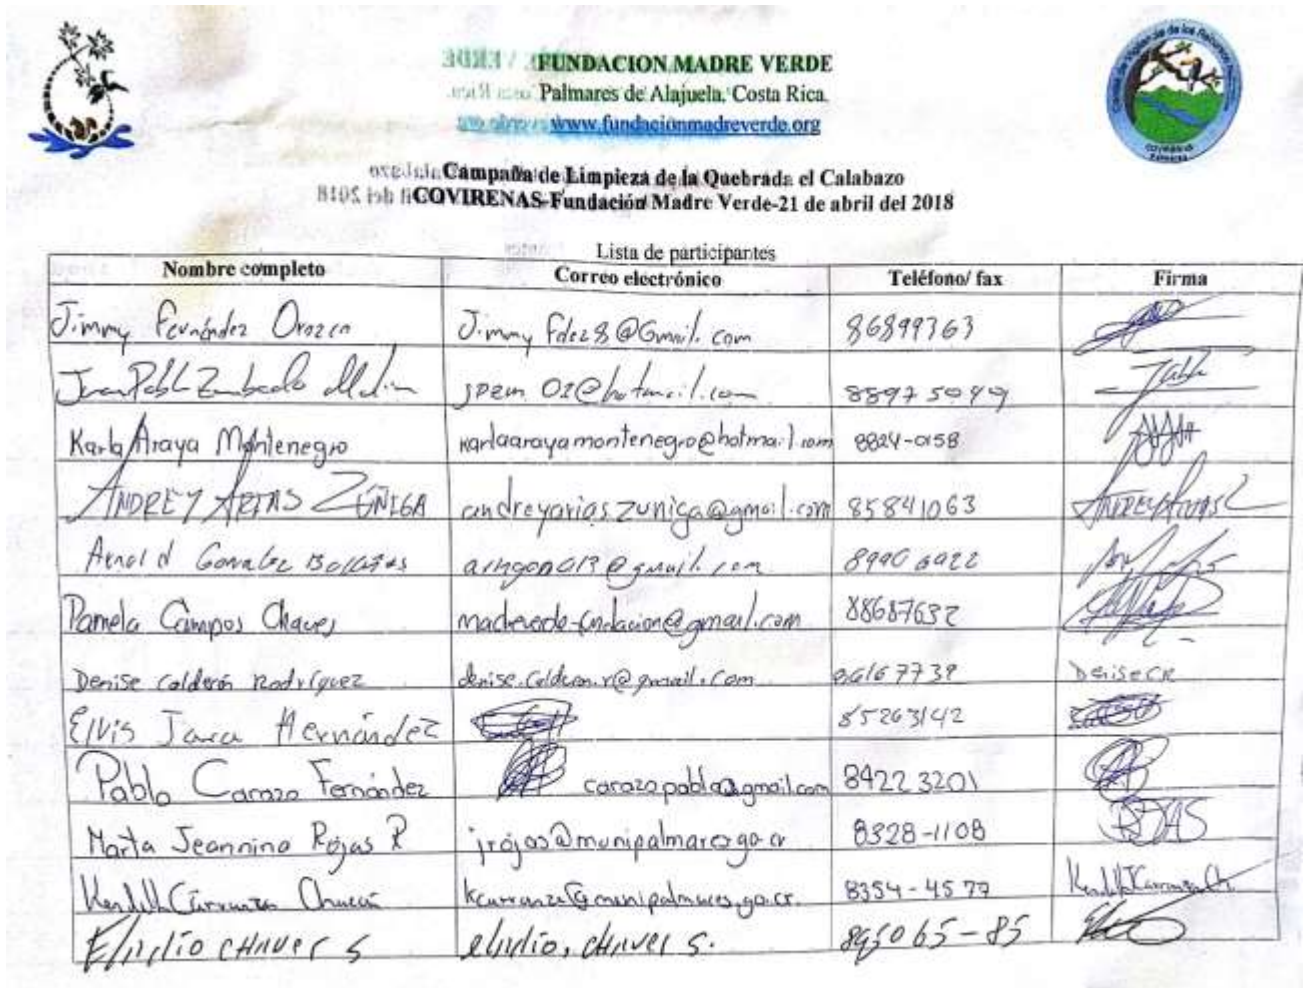 FUNDACION MADRE VERDE
Palmares de Alajuela, Costa Rica.
www.fundacionmadreverde.org
Campaña de Limpieza de la Quebrada el Calabazo
COVIRENAS-Fundación Madre Verde-21 de abril del 2018
Lista de participantes
Nombre completo Correo electrónico Teléfono/ fax Firma
Jimmy Fernández Orozco Jimmy fdez8@Gmail.com 86899363
Juan Pablo Zumbado jpzm.02@hotmail.com 88975049
Karla Araya Montenegro karlaarayamontenegro@hotmail.com 8824-0158
ANDREY ARIAS ZÚÑIGA andreyarias.zuniga@gmail.com 85841063
Arnold González Bolaños @gmail.com
Pamela Campos Chaves 88687632
Denise Calderón Rodríguez denise.calderon.r@gmail.com 86167739 Denise CR
Elvis Jara Hernández 85263142
Pablo Carazo Fernández carazopablo@gmail.com 84223201
Marta Jeannina Rojas R jrojas@munipalmares.go.cr 8328-1108
Kendall Carranza kcarranza@munipalmares.go.cr. 8354-4577